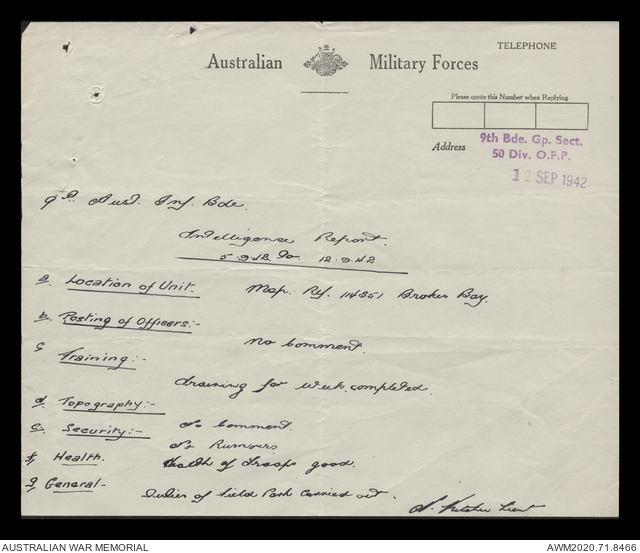 TELEPHONE
Australian Military Forces
Please quote this Number when Replying
Address
9th Bde. Gp. Sect.
50 Div. O.F.P.
12 SEP 1942
9th Aust. Inf. Bde.
Intelligence Report.
5.9.42 to 12.9.42
a. Location of Unit. Map. Ref. 114351 Broken Bay.
b. Posting of Officers:-
No Comment.
c Training:-
Training for week completed.
d. Topography:-
No Comment.
e. Security:-
No Rumours
f, Health.
Health of Troops good.
g. General-
Duties of Field Park carried out.
Lieut
AUSTRALIAN WAR MEMORIAL
AWM2020.71.8466